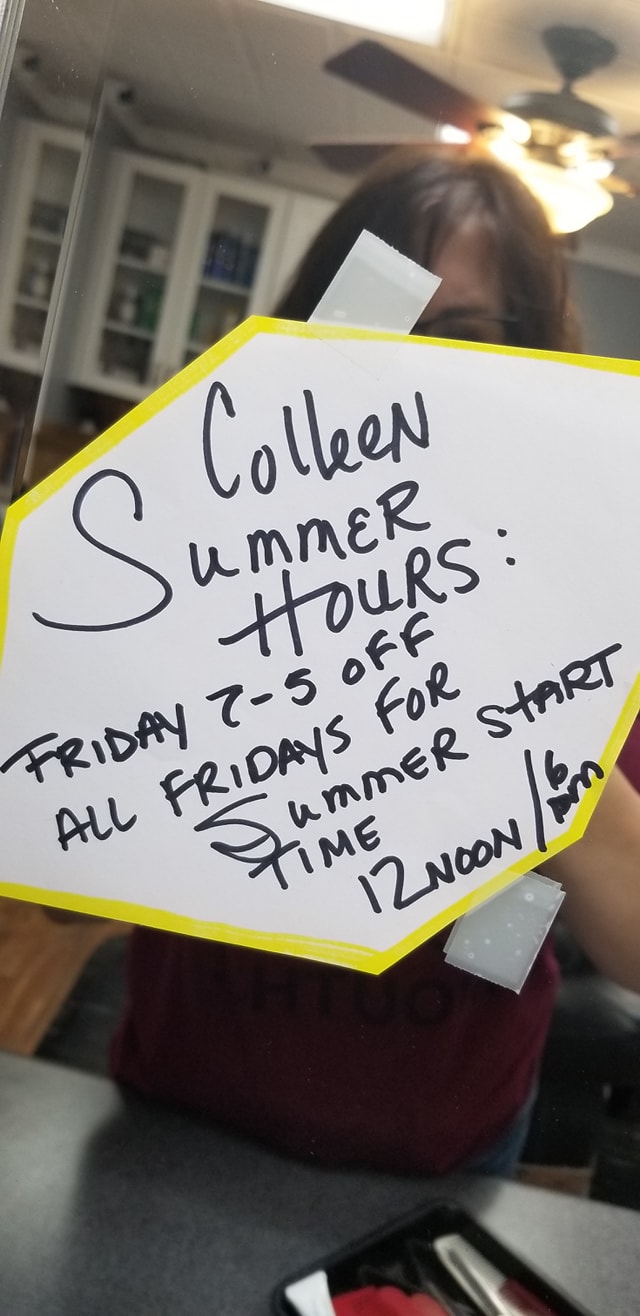 Colleen
Summer
Hours:
Friday 7-5 off
All Fridays for
Summer Start
Time
12 Noon/6pm
HTUO